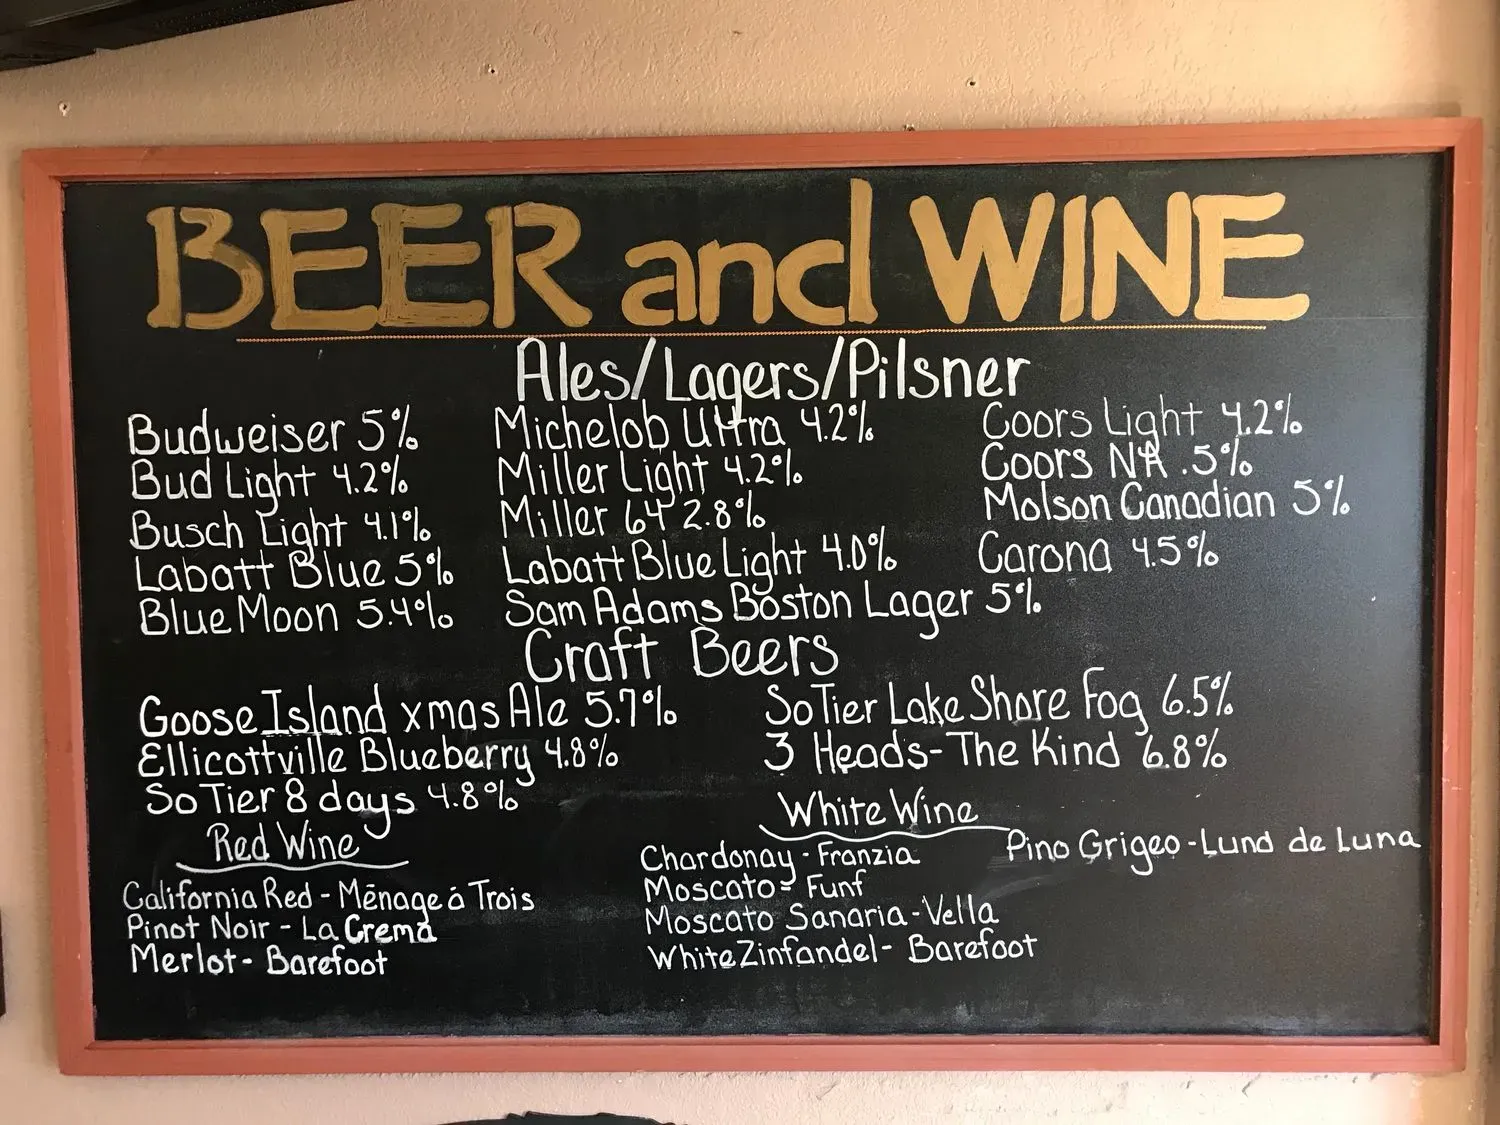 BEER and WINE
Ales/Lagers/Pilsner
Budweiser 5%
Bud Light 4.2%
Busch Light 4.1%
Labatt Blue 5%
Blue Moon 5.4%
Michelob Ultra 4.2%
Miller Light 4.2%
Miller 64 2.8%
Labatt Blue Light 4.0%
Sam Adams Boston Lager 5%
Coors Light 4.2%
Coors NA .5%
Molson Canadian 5%
Carona 4.5%
Craft Beers
Goose Island xmas Ale 5.7%
Ellicottville Blueberry 4.8%
SoTier 8 days 4.8%
SoTier Lake Shore Fog 6.5%
3 Heads-The Kind 6.8%
Red Wine
California Red - Mēnage á Trois
Pinot Noir - La Crema
Merlot - Barefoot
White Wine
Chardonay - Franzia
Moscato - Funf
Moscato Sanaria - Vella
White Zinfandel - Barefoot
Pino Grigeo - Lund de Luna